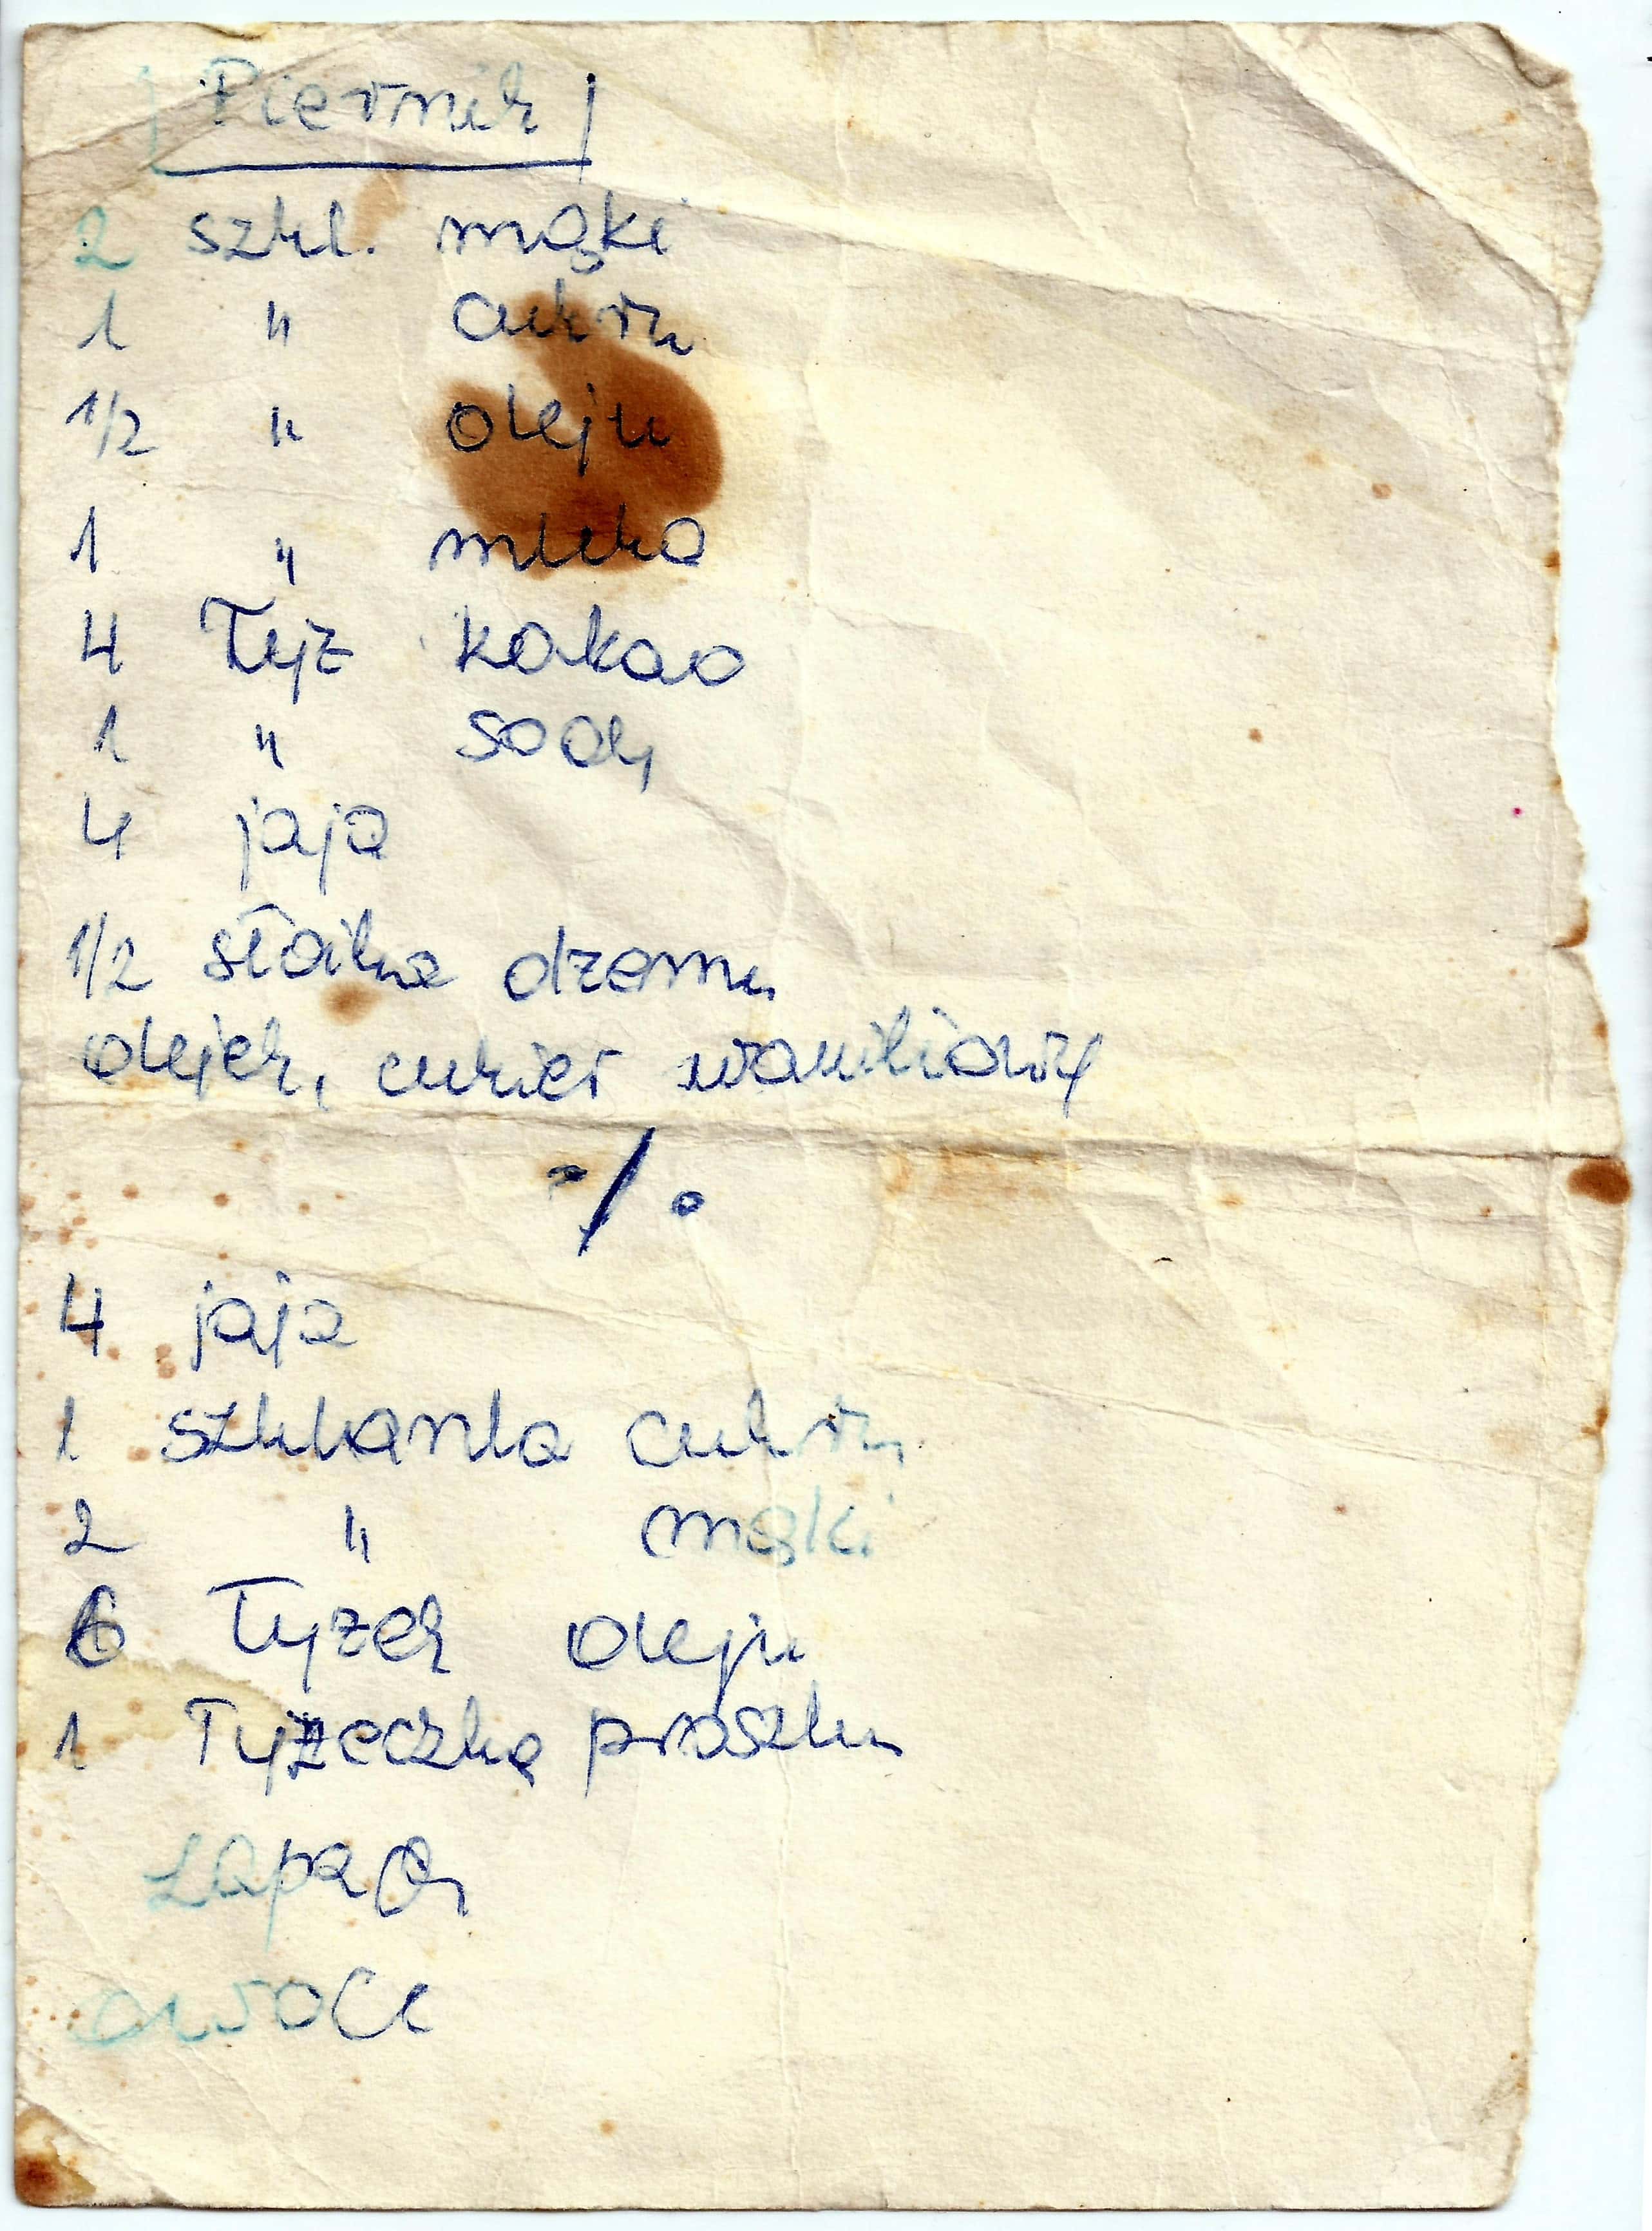 Piernik
2 szkl. mąki
1 " cukru
1/2 " oleju
1 " mleka
4 Łyż kakao
1 " sody
4 jaja
1/2 słoika dżemu
olejek, cukier waniliowy
·/.
4 jaja
1 szklanka cukru
2 " mąki
6 Łyżek oleju
1 Łyżeczka proszku
zapach
owoce